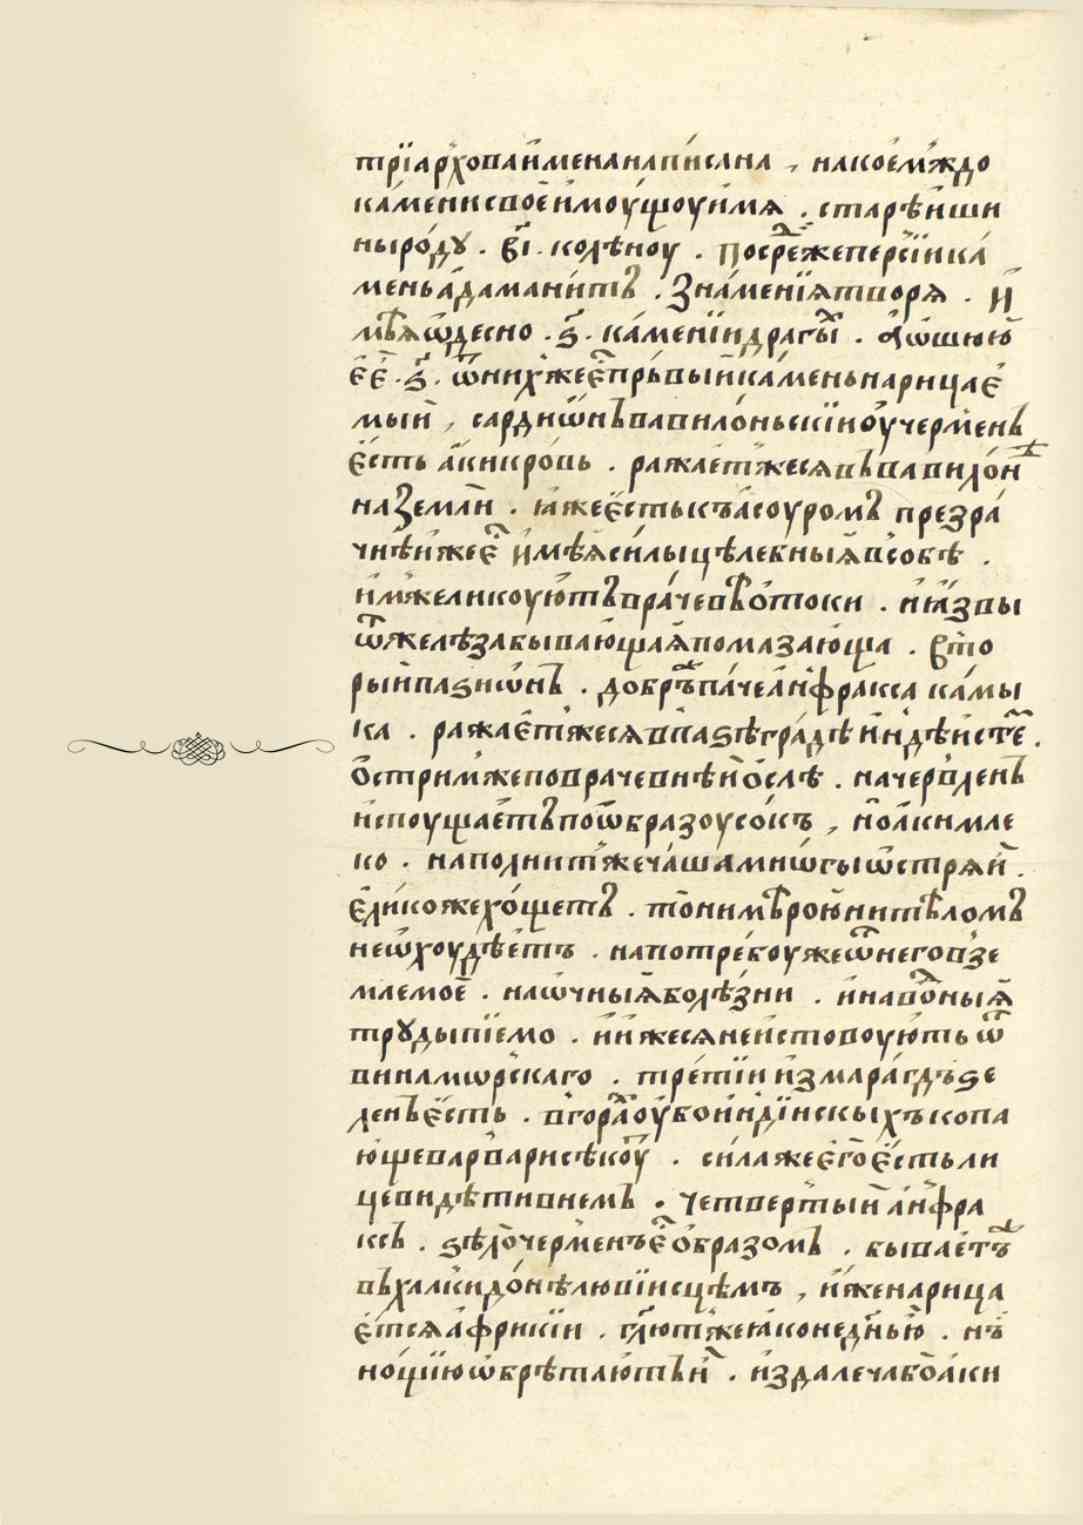 трїархова и҆мена написана , на коемꙋждо
ка́мени своѐ и҆моу́щоу и҆мѧ . старѣ́йши
ны ро́дꙋ . в҃і . колѣ́ноу . посрⷣе́же персїи ка́
мень а҆дамани́тъ . зна́менїѧ творѧ . и҆
мѣѧ ѡ҆десно . ѕ҃ . ка́менїи драгыⷯ . а҆ ѡ҆шюю̀
е҆ѐ . ѕ҃ . ѿ ни́хже е҆ⷭ҇ пръ́вый ка́мень нарицае́
мый , сардиѡ́нъ вавило́ньскїи ѹ҆чермленъ
е҆́сть а҆́ки кро́вь . ражае́тжесѧ въ вавило́нѣ
на землѝ . ꙗ҆́же е҆́сть къ а҆соуромъ презра́
чнѣйже е҆ⷭ҇ и҆мѣ́ѧ си́лы цѣле́бныѧ в собѣ̀ .
и҆́мже ликоую́тъ врачевѣ ѻ҆́токи . и҆ ꙗ҆́звы
ѿ желѣ́за быва́ющаѧ помазаю́ща . вто
рый паѕїѡ́нъ . добръⷨ па́че а҆́нѳракса ка́мы
ка . ражае́тжесѧ в паѕѣ гра́дѣ и҆ндѣ́йстеⷨ .
ѻ҆стри́мже по врачевнѣй ѻ҆́слѣ . начервленъ
и҆споущае́тъ по ѡ҆бразоу со́къ , и҆ ѻ҆́аки мле
ко . наполни́тже ча́ша мнѡ́гы ѡ҆стрѧй .
е҆ли́коже хо́щетъ . то̀ ни мѣ́рою ни тѣ́ломъ
не ѡ҆хоудѣ́етъ . на потре́боу же ѿ него̀ взе
млемое . на ѡ҆́чныѧ болѣ́зни . и҆ на воⷣныѧ
трꙋды пїемо . и҆ и҆́же сѧ неи́стовоую́ть ѿ
вина мѡрскаго . тре́тїи и҆змара́гдъ ѕе
ленъ е҆́сть . в гораⷯ оу҆́бо и҆ндїискыхъ копа
ю́ще варвари сѣ́коуⷮ . си́лаже е҆го̀ е҆́сть ли
це ви́дѣти в немъ . четвертый а҆́нѳра
ксъ . ѕѣло̀ черменъ е҆ⷭ҇ ѻ҆́бразомъ . бывае́тъⷤ
въ халкидо́нѣ лювїисцѣмъ , и҆́же нарица
е҆́тсѧ а҆фрикїи . гл҃ютже ꙗ҆́ко не дн҃ью . нъ
но́щїю ѡ҆брѣта́ютьи҆ . и҆здалеча бо̀ а҆́ки